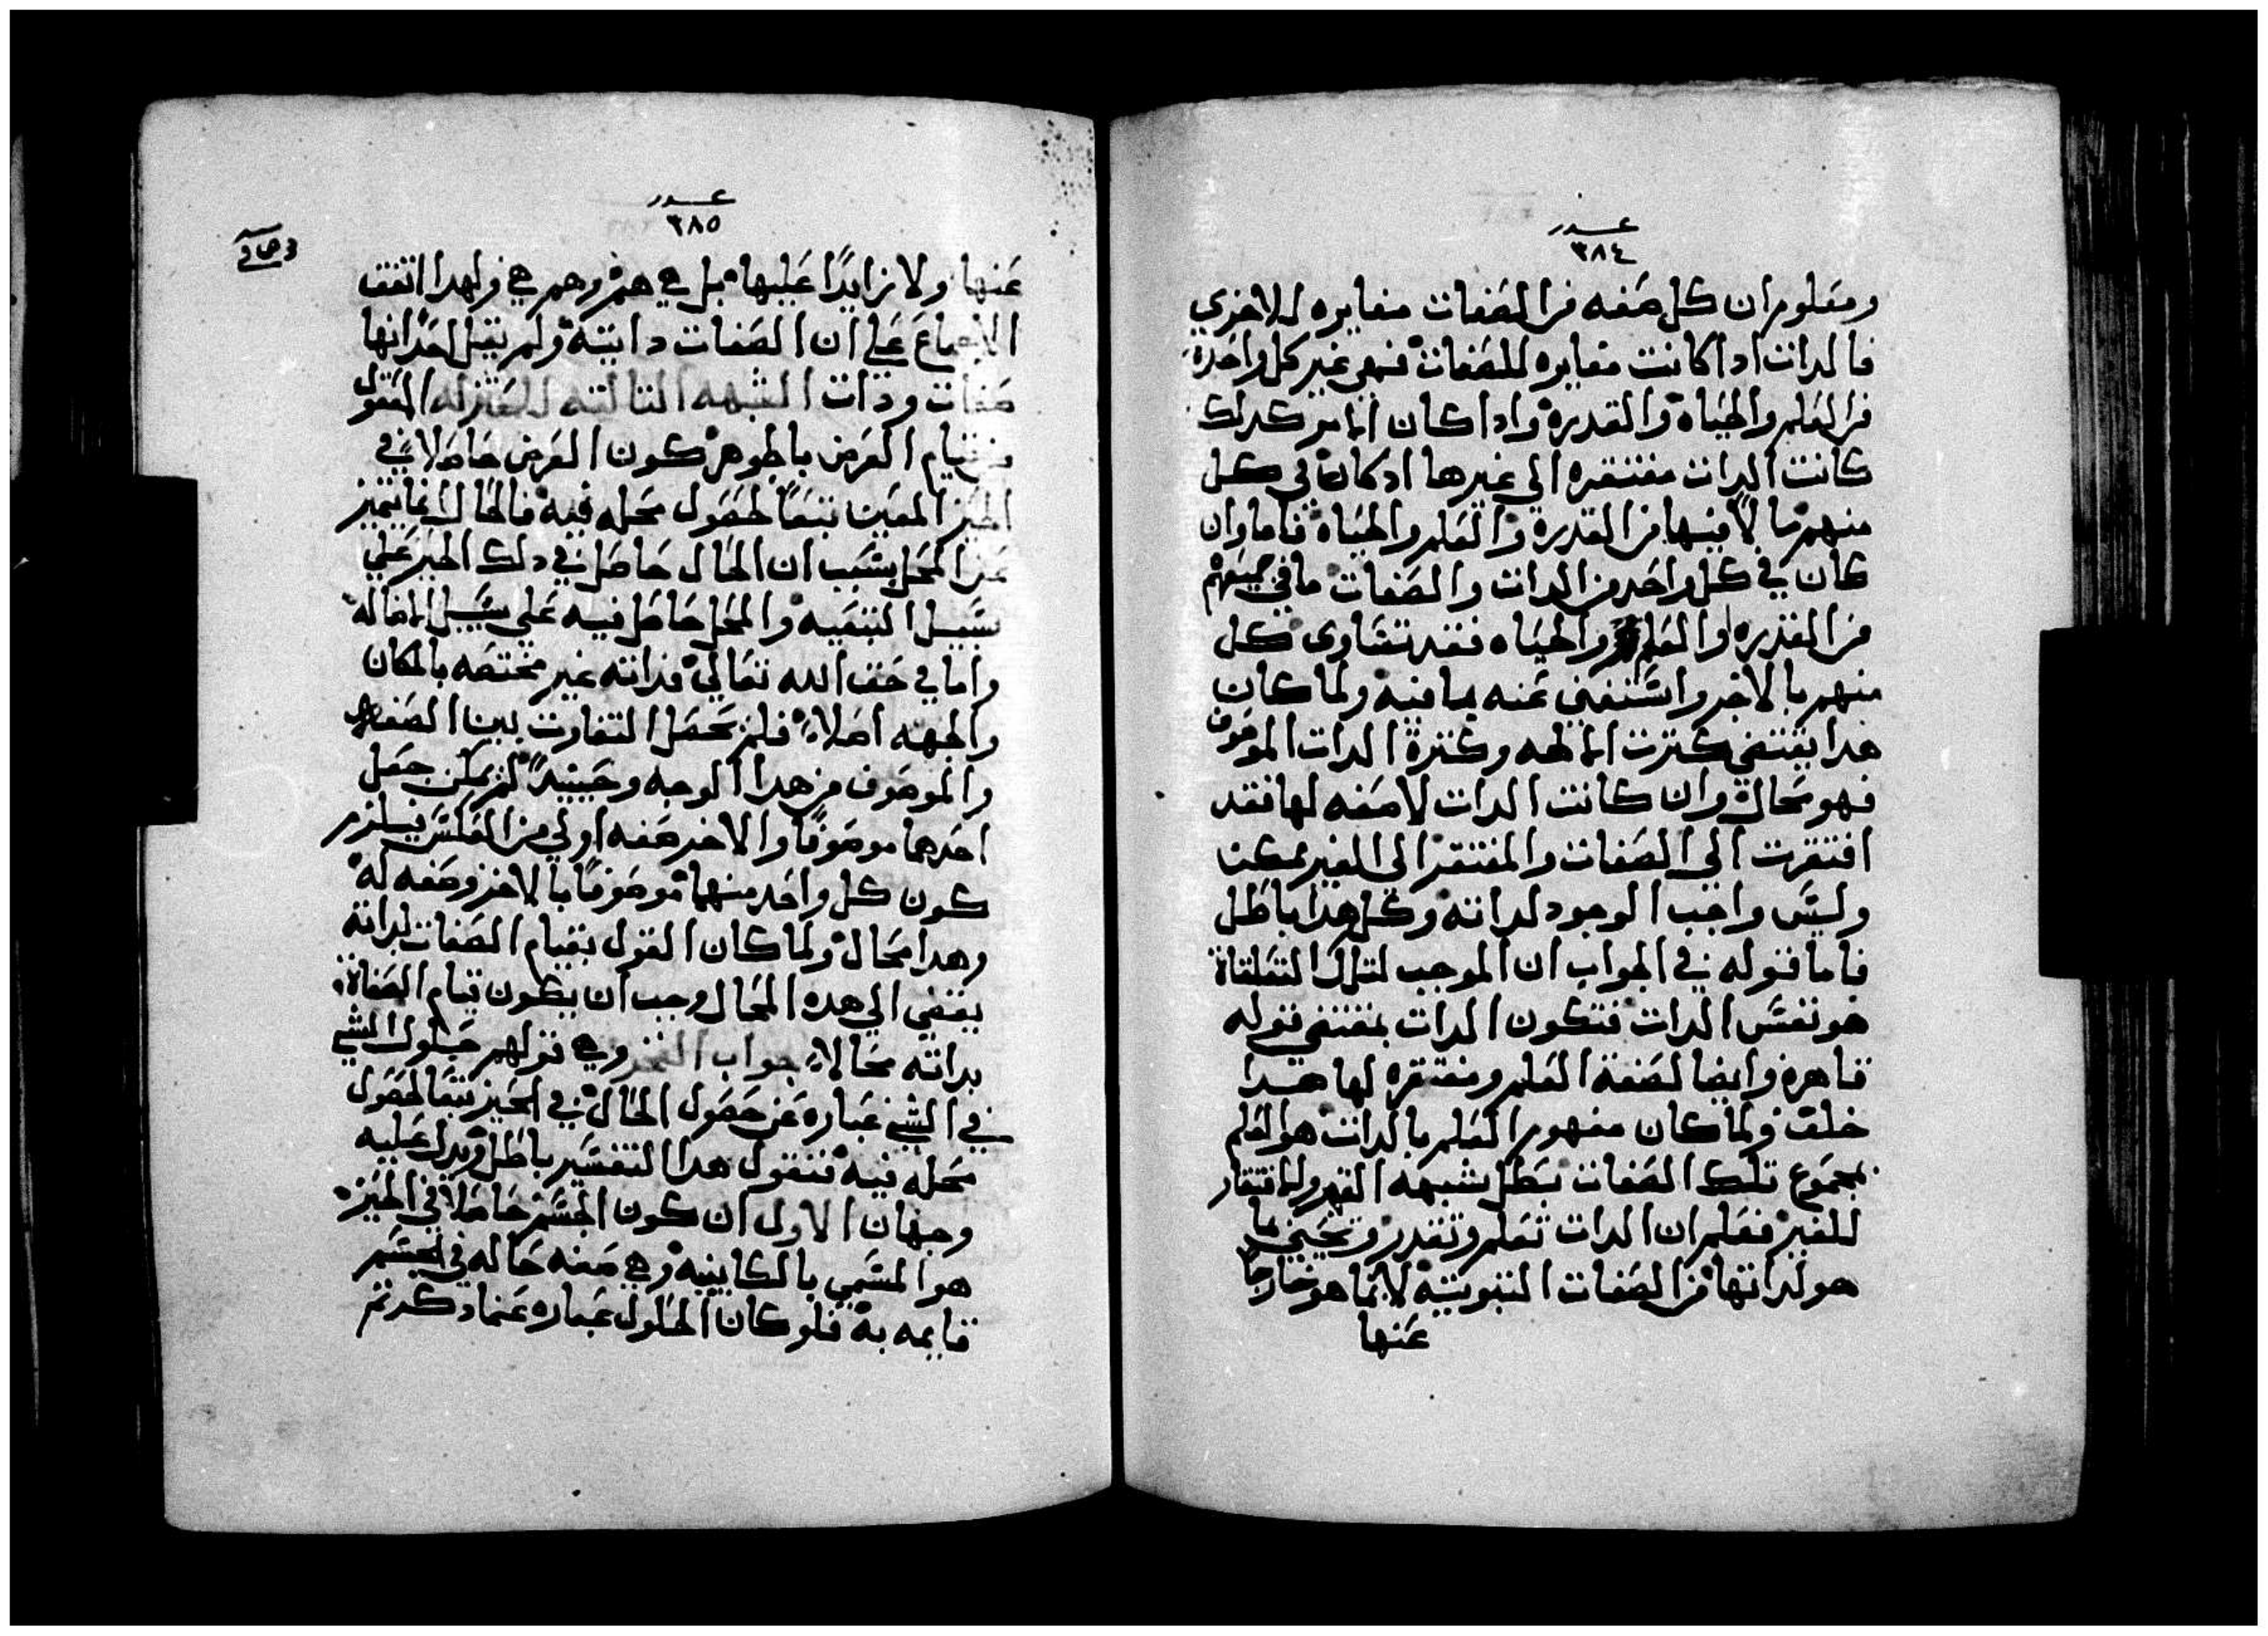 عدد
٣٨٤
ومعلوم ان كل صفه من الصفات مغايره للاخري
فالدات ادا كانت مغايره للصفات فهي غير كل واحدة
من العلم والحياه والقدره وادا كان الامر كدلك
كانت الدات مفتقره الي غيرها اد كان في كل
منهم ما لا فيها من القدره والعلم والحياه فاما وان
كان في كل واحد من الدات والصفات ما في جميعهم
من القدره والعلم والحياه فقد تساوى كل
منهم بالاخر واستغني عنه بما فيه ولما كان
هدا يقتضي كترت الالهه وكترة الدات الموصوف
فهو محال وان كانت الدات لا صفه لها فقد
افتقرت الي الصفات والمفتقر الى الغير ممكن
وليس واجب الوجود لداته وكل هدا باطل
فاما قوله في الجواب ان الموجب لتلك التعلقاة
هو نفس الدات فتكون الدات بمقتضي قوله
قاهره وايضا لصفة العلم ومفتقره لها هدا
خلف ولما كان مفهوم العلم بالدات هو العلم
بمجموع تلك الصفات بطل شبهه القهر والافتقار
للغير فعلم ان الدات تعلم وتقدر وتحيي بما
هو لداتها من الصفات التبوتيه لا بما هو خارجا
عنها
عدد
٣٨٥
عنها ولا زايدًا عليها بل هي هم وهم هي ولهدا اتفق
الاجماع علي ان الصفات داتيه ولم يقل احد انها
صفات ودات الشبهه التالته للمعتزله المعقول
من قيام العرض بالجوهر كون العرض حاصلا في
الحيز المعين تبعًا لحصول محله فيه فالحال انما يتميز
عن المحل بسبب ان الحال حاصل في دلك الحيز علي
سبيل التبعيه والمحل حاصل فيه علي سبيل الاصاله
واما في حق الله تعالي فداته غير مختصه بالمكان
والجهه اصلا فلم يحصل التفاوت بين الصفه
والموصوف من هدا الوجه وحينيدً لم يمكن جعل
احدهما موصوفًا والاخر صفه اولي من العكس فيلزم
كون كل واحد منهما موصوفًا بالاخر وصفه له
وهدا محال ولما كان القول بقيام الصفات بداته
يفضي الي هده المحال وجب ان يكون قيام الصفاة
بداته محالا جواب الفخر وهي قولهم حلول الشي
في الشي عباره عن حصول الحال في الحيز تبعًا لحصول
محله فيه فنقول هدا التفسير باطل ويدل عليه
وجهان الاول ان كون الجسم حاصلا في الحيز
هو المسمي بالكاينيه وهي صفه حاله في الجسم
قايمه به فلو كان الحلول عباره عما دكرتم